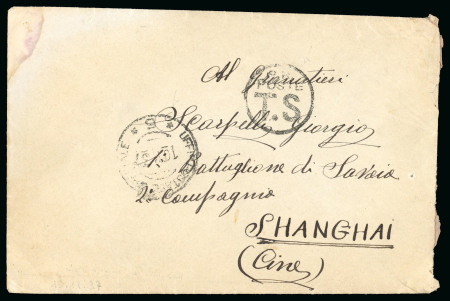 Al Granatieri
POSTE
T.S
Scarpelli Giorgio
Battaglione di Savoia
2a Compagnia
SHANGHAI
(Cina)